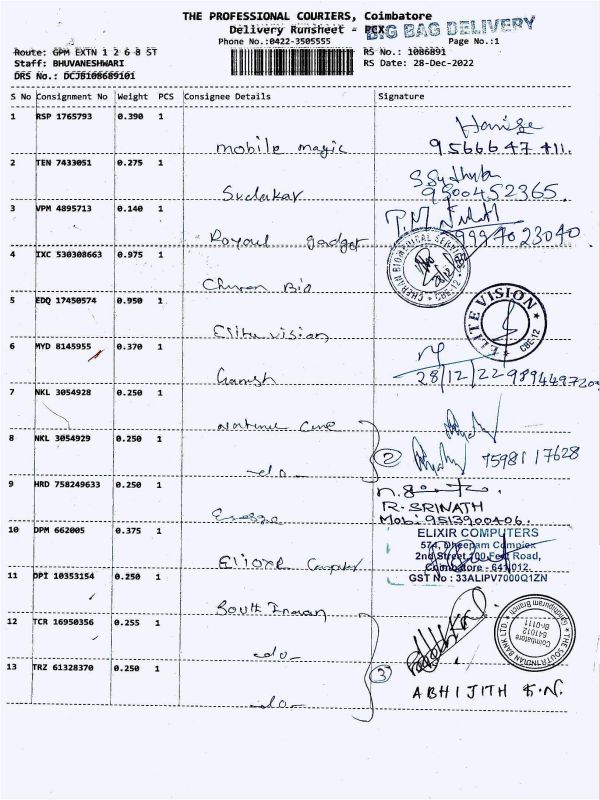 THE PROFESSIONAL COURIERS, Coimbatore
Delivery Runsheet - PCX
BIG BAG DELIVERY
Phone No.:0422-3505555
Page No.:1
Route: GPM EXTN 1 2 6 8 ST
RS No.: 1086891
Staff: BHUVANESHWARI
RS Date: 28-Dec-2022
DRS No.:
S No Consignment No Weight PCS Consignee Details Signature
1 RSP 1765793 0.390 1
mobile magic 9566647411.
2 TEN 7433051 0.275 1
Sudakar 9300452365.
3 VPM 4895713 0.140 1
Royal gadget 9994023040
4 IXC 530308663 0.975 1
Bio
5 EDQ 17450574 0.950 1
Elite vision
ELITE VISION
CBE-12
6 MYD 8145955 0.370 1
Ganesh 28/12/22
7 NKL 3054928 0.250 1
Natural Care
8 NKL 3054929 0.250 1
-do- 2 75981 17628
9 HRD 758249633 0.250 1
R. SRINATH
Mob: 9513900406.
10 DPM 662005 0.375 1
ELIXIR COMPUTERS
574, Dheepam Complex
2nd Street, 100 Feet Road,
Coimbatore - 641 012.
GST No : 33ALIPV7000Q1ZN
Computer
11 DPI 10353154 0.250 1
South Indian
12 TCR 16950356 0.255 1
-do-
THE SOUTH INDIAN BANK LTD.
Gandhipuram Branch
Coimbatore
641012
Br-0111
13 TRZ 61328370 0.250 1
3
ABHIJITH K.N.
-do-